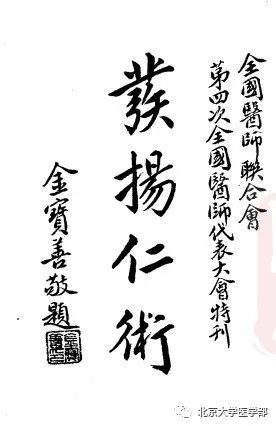 全國醫師聯合會
第四次全國醫師代表大會特刊
發揚仁術
金寶善敬題
北京大学医学部